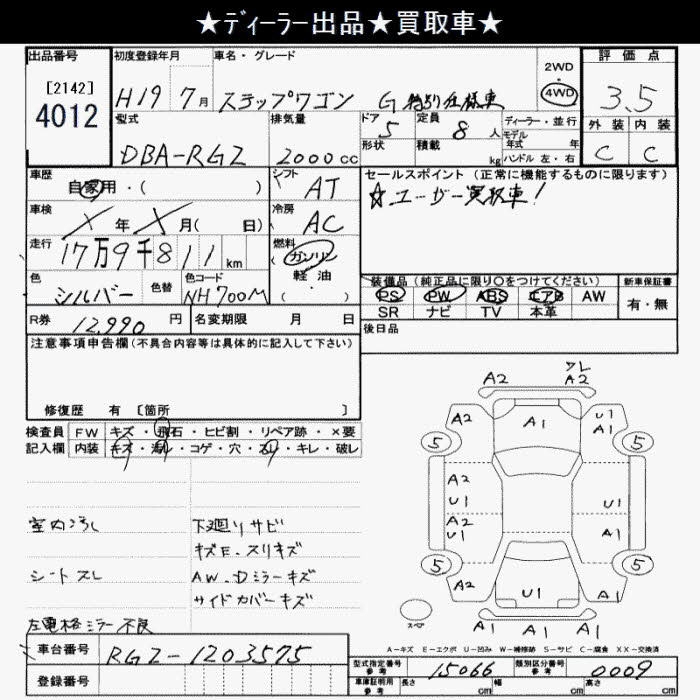 ★ディーラー出品★買取車★
出品番号 初度登録年月 車名・グレード 2WD・4WD 評価点
[2142]
4012 H19 7月 ステップワゴン G 特別仕様車 3.5
型式 排気量 ドア 5 定員 8人 ディーラー・並行 外装 内装
モデル年式 年
DBA-RG2 2000cc 形状 積載 kg ハンドル 左・右 C C
車歴 自家用・( ) シフト AT セールスポイント (正常に機能するものに限ります)
☆ユーザー買取車!
車検 X年 X月( 日) 冷房 AC
走行 17万9千811km 燃料 ガソリン
軽油
( ・ )
色 シルバー 色替 色コード NH700M
装備品(純正品に限り○をつけてください) 新車保証書
PS PW ABS エアB AW 有・無
SR ナビ TV 本革
R券 12,990円 名変期限 月 日 後日品
注意事項申告欄(不具合内容等は具体的に記入して下さい)
修復歴 有 [箇所 ]
検査員 FW キズ・飛石・ヒビ割・リペア跡・×要
記入欄 内装 キズ・汚れ・コゲ・穴・スレ・キレ・破レ
室内汚れ 下廻りサビ
キズE.スリキズ
シートスレ AW.Dミラーキズ
サイドカバーキズ
左電格ミラー不良
ワレ
A2 A2
A2 A1 U1
A1
5 5
A2
U1 U1
A2
U1 A1
5 5
A2 U1 A1
A1 A1 A1
スペア
A-キズ E-エクボ U-凹み W-補修跡 S-サビ C-腐食 XX-交換済
車台番号 RG2-1203575
登録番号
型式指定番号 参考 15066 類別区分番号 参考 0009
車庫証明用 参考 長さ cm 幅 cm 高さ cm